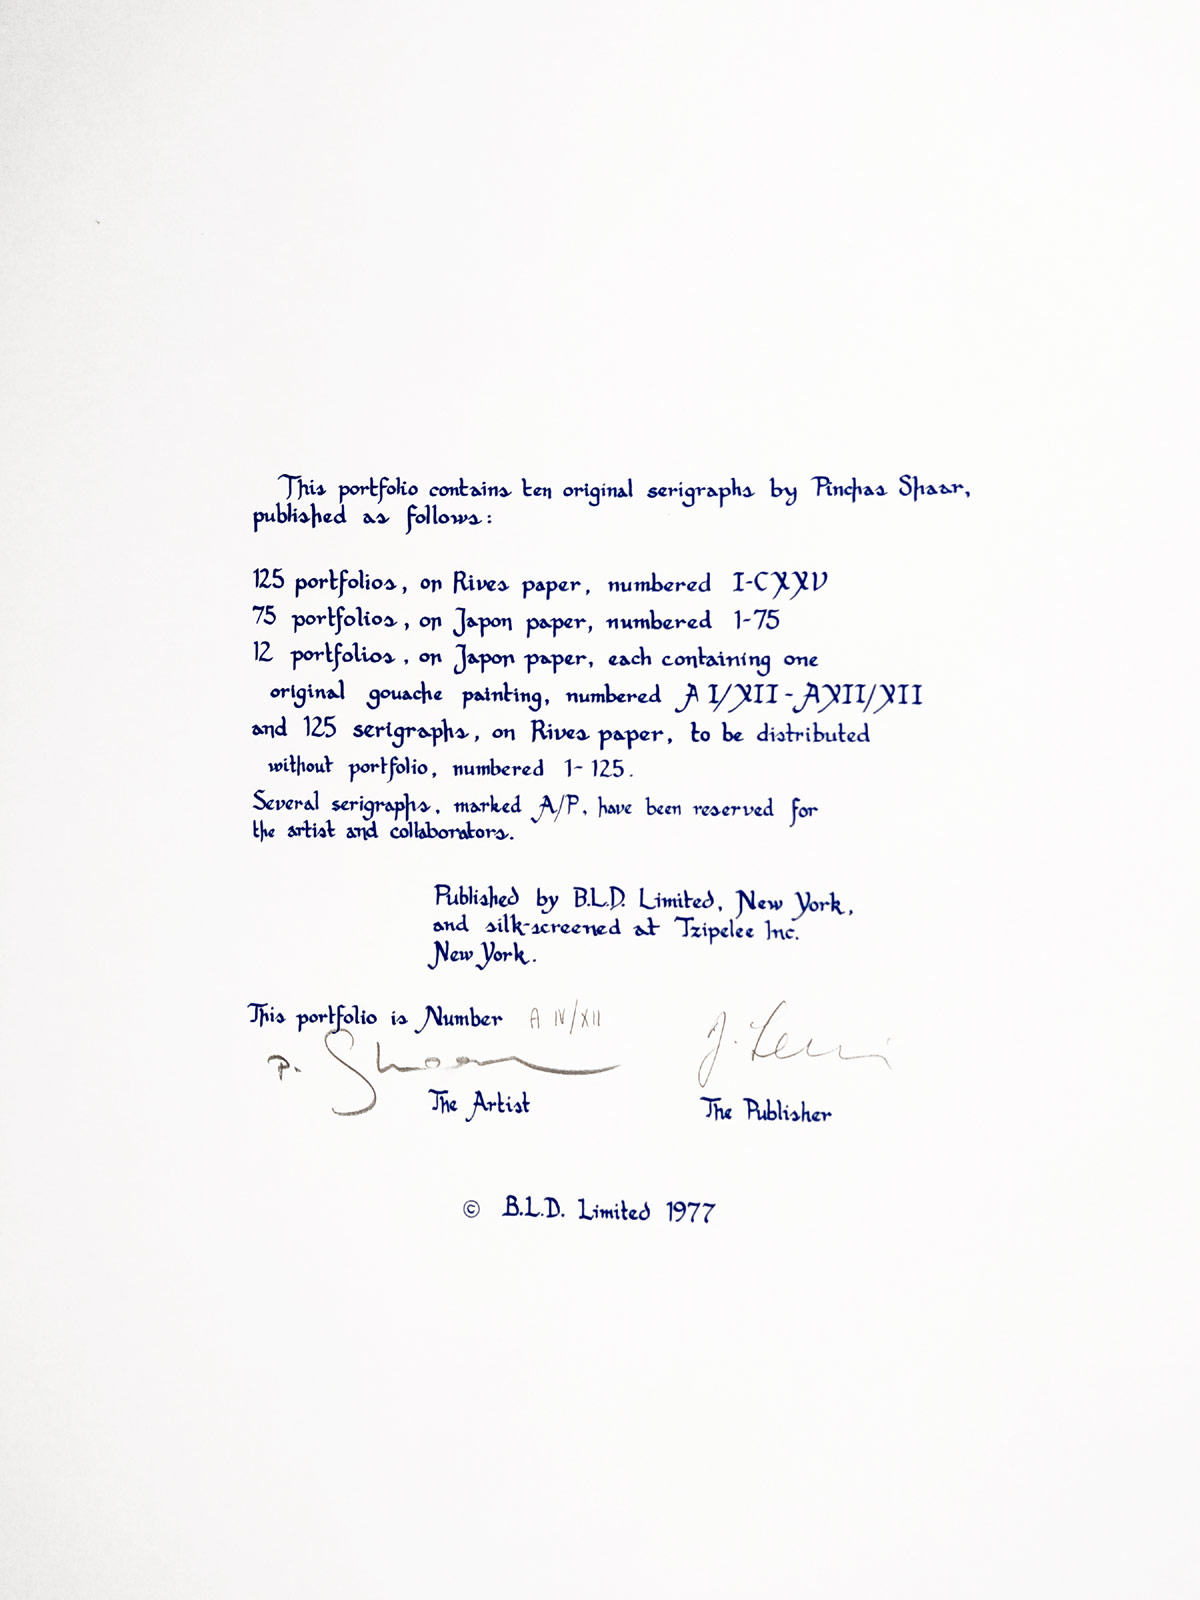 This portfolio contains ten original serigraphs by Pinchas Shaar,
published as follows:
125 portfolios, on Rives paper, numbered I-CXXV
75 portfolios, on Japon paper, numbered 1-75
12 portfolios, on Japon paper, each containing one
original gouache painting, numbered A I/XII - AXII/XII
and 125 serigraphs, on Rives paper, to be distributed
without portfolio, numbered 1-125.
Several serigraphs, marked A/P, have been reserved for
the artist and collaborators.
Published by B.L.D. Limited, New York,
and silk-screened at Tzipelee Inc.
New York.
This portfolio is Number A IV/XII
P. Shaar
The Artist
The Publisher
© B.L.D. Limited 1977